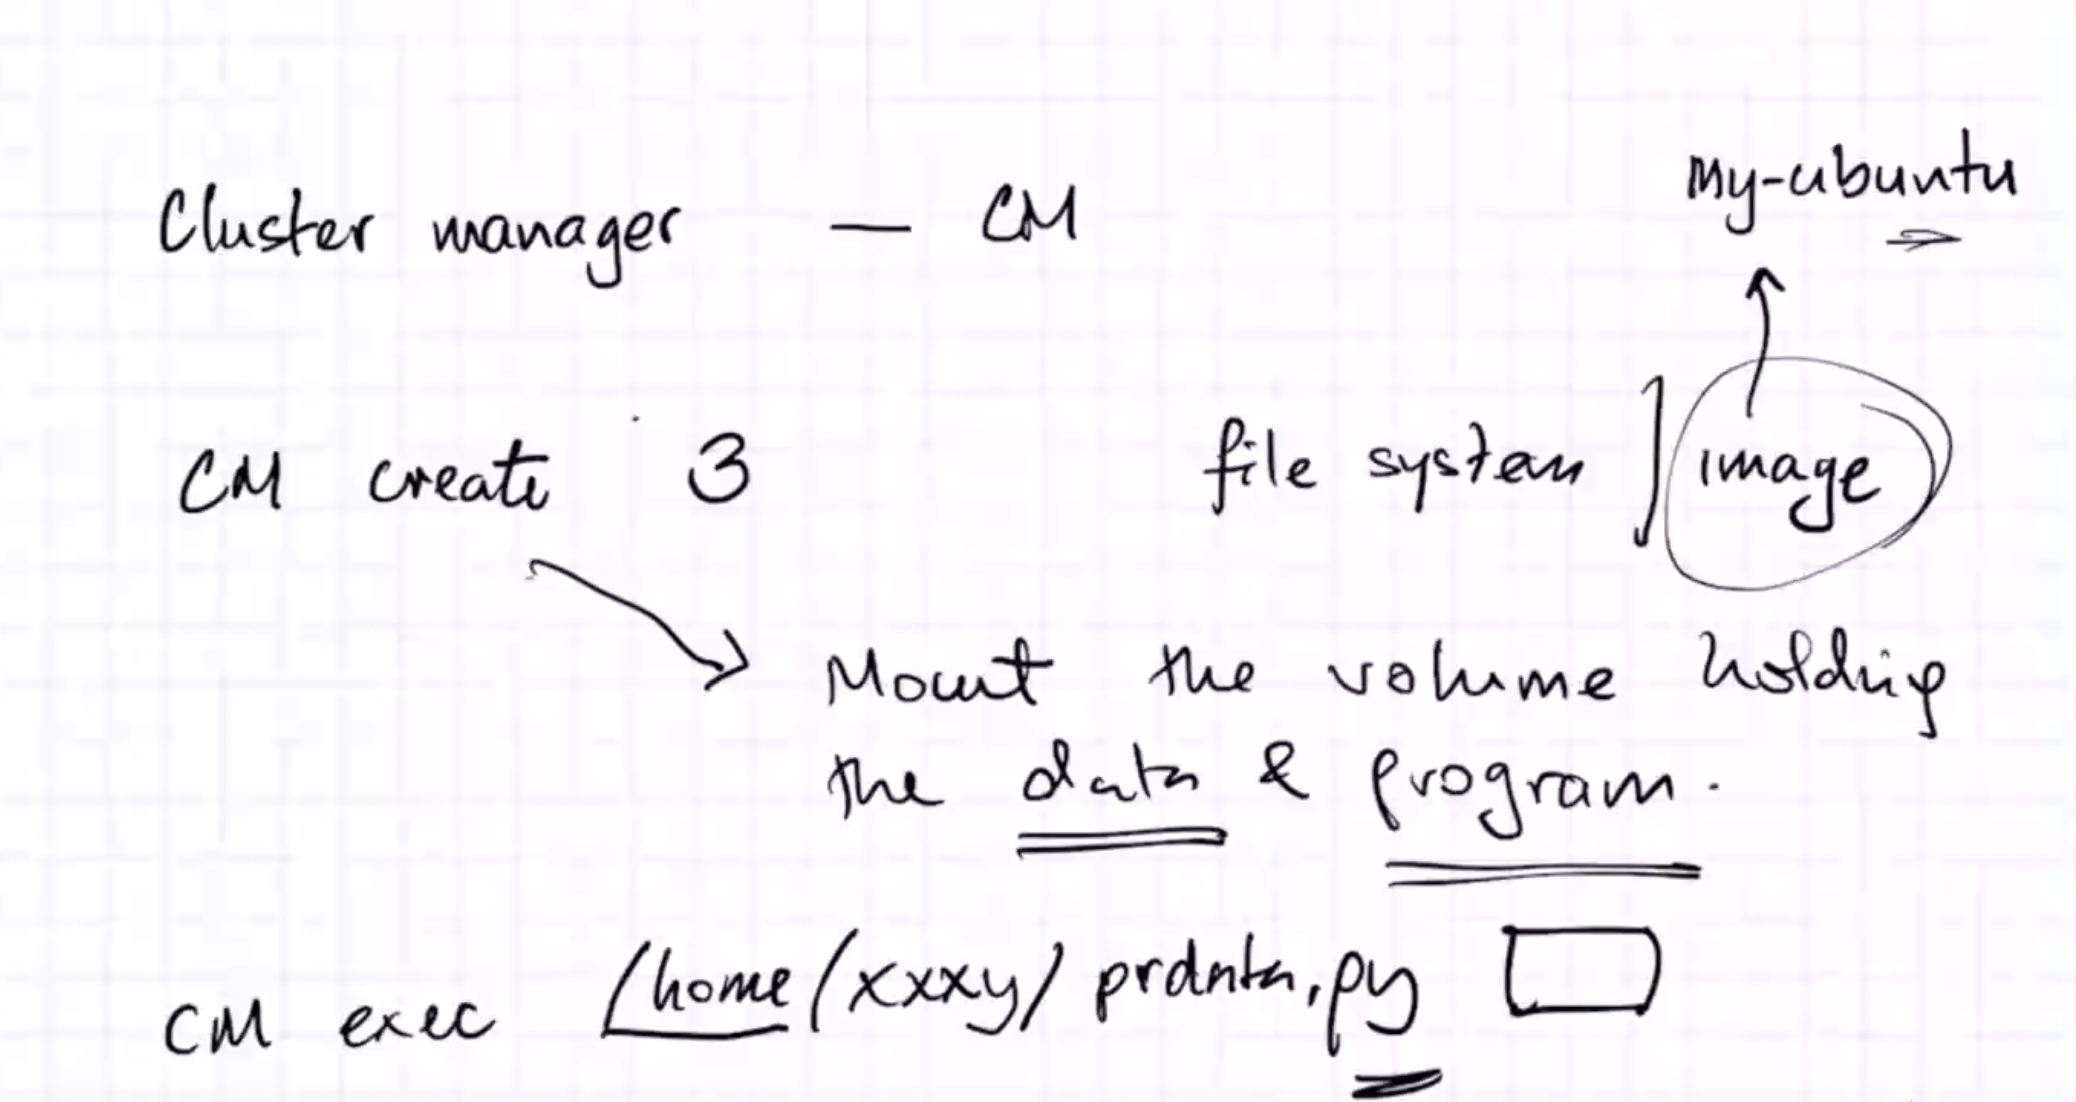 my-ubuntu
Cluster manager — CM
CM create 3 file system image
Mount the volume holding
the data & program.
CM exec /home/xxxy/prdata.py